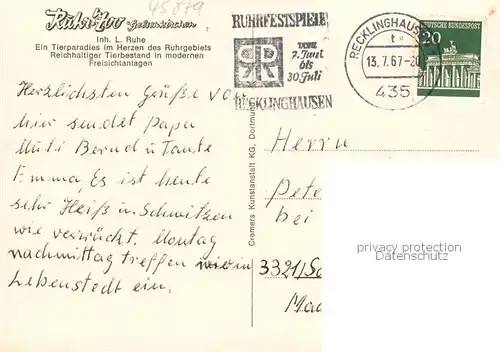 45879
Ruhr-Zoo Gelsenkirchen
Inh. L. Ruhe
Ein Tierparadies im Herzen des Ruhrgebiets
Reichhaltiger Tierbestand in modernen
Freisichtanlagen
RUHRFESTSPIELE
vom
2. Juni
bis
30. Juli
RECKLINGHAUSEN
RECKLINGHAUS
t
13.7.67-20
435
DEUTSCHE BUNDESPOST
20
Herzlichsten Grüße von
hier sendet Papa
Muti Bernd u Tante
Emma, Es ist heute
sehr Heiß u. Schwitzen
wie verrückt. Montag
nachmittag treffen wir in
Lebenstedt ein.
Cramers Kunstanstalt KG, Dortmund
Herrn
Pete
bei
3321/Sa
Mad
privacy protection
Datenschutz